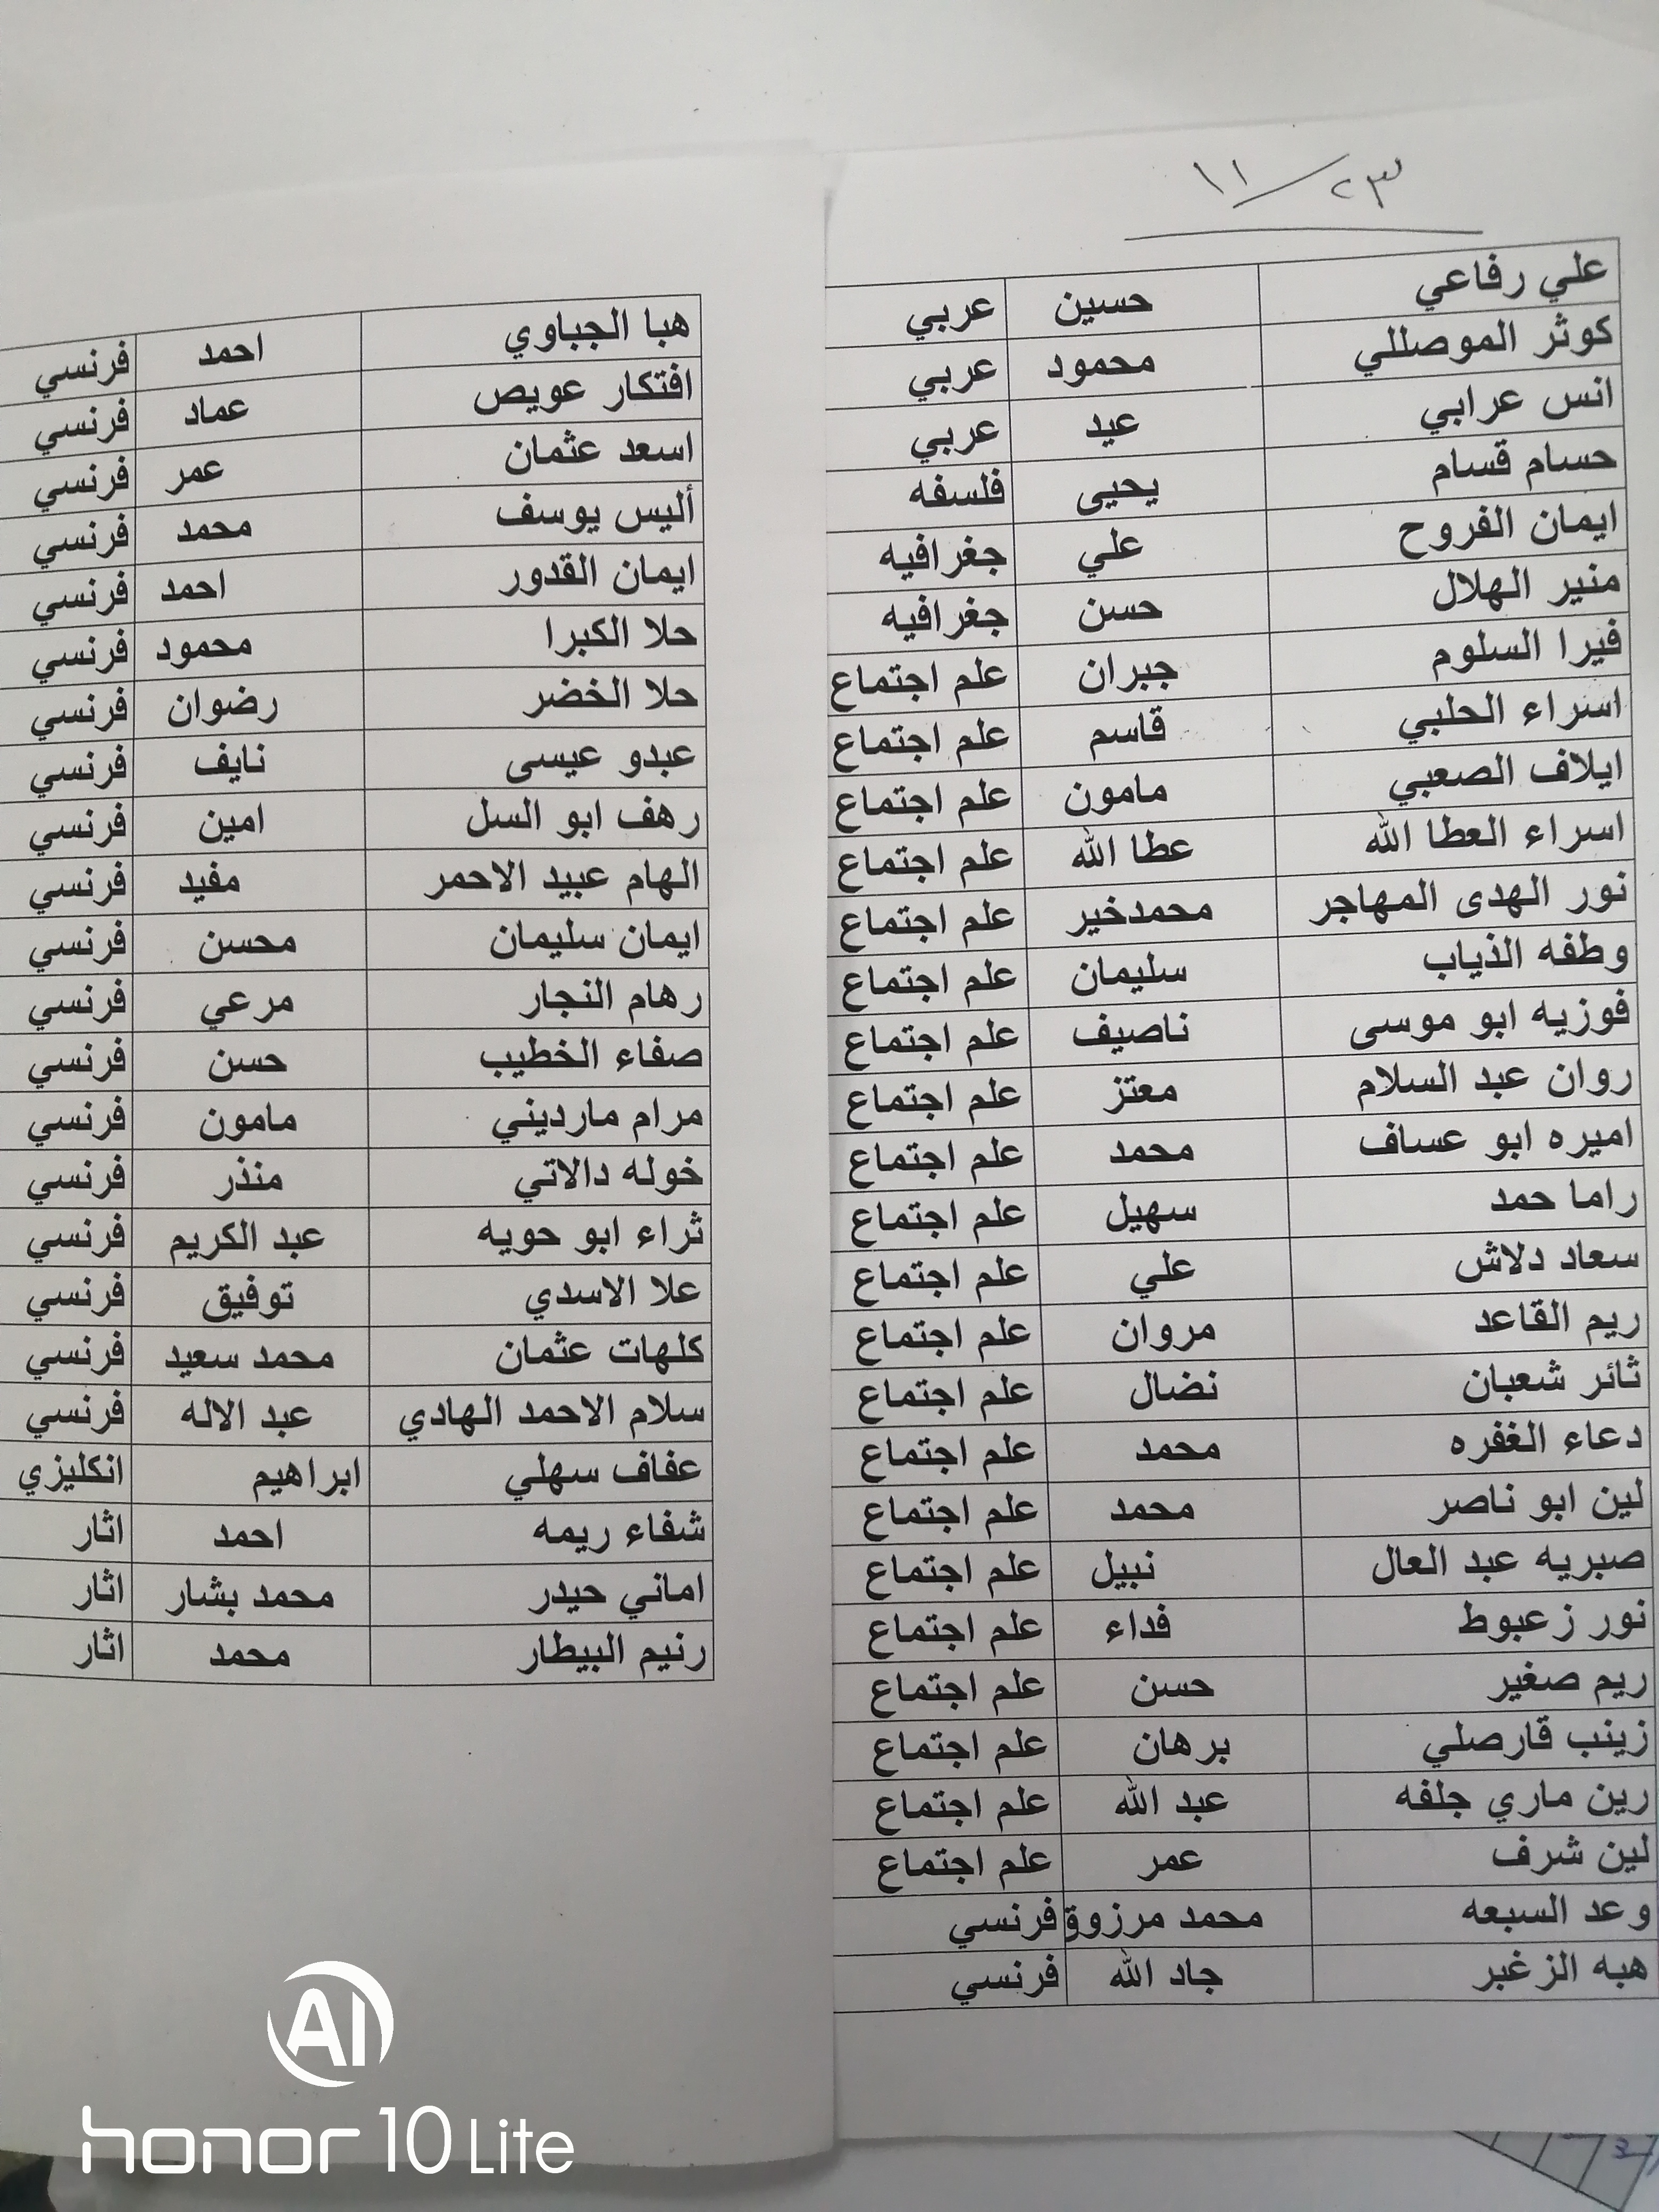 ١١/٢٣
علي رفاعي حسين عربي
كوثر الموصللي محمود عربي
انس عرابي عيد عربي
حسام قسام يحيى فلسفه
ايمان الفروح علي جغرافيه
منير الهلال حسن جغرافيه
فيرا السلوم جبران علم اجتماع
اسراء الحلبي قاسم علم اجتماع
ايلاف الصعبي مامون علم اجتماع
اسراء العطا الله عطا الله علم اجتماع
نور الهدى المهاجر محمدخير علم اجتماع
وطفه الذياب سليمان علم اجتماع
فوزيه ابو موسى ناصيف علم اجتماع
روان عبد السلام معتز علم اجتماع
اميره ابو عساف محمد علم اجتماع
راما حمد سهيل علم اجتماع
سعاد دلاش علي علم اجتماع
ريم القاعد مروان علم اجتماع
ثائر شعبان نضال علم اجتماع
دعاء الغفره محمد علم اجتماع
لين ابو ناصر محمد علم اجتماع
صبريه عبد العال نبيل علم اجتماع
نور زعبوط فداء علم اجتماع
ريم صغير حسن علم اجتماع
زينب قارصلي برهان علم اجتماع
رين ماري جلفه عبد الله علم اجتماع
لين شرف عمر علم اجتماع
وعد السبعه محمد مرزوق فرنسي
هبه الزغبر جاد الله فرنسي
هبا الجباوي احمد فرنسي
افتكار عويص عماد فرنسي
اسعد عثمان عمر فرنسي
أليس يوسف محمد فرنسي
ايمان القدور احمد فرنسي
حلا الكبرا محمود فرنسي
حلا الخضر رضوان فرنسي
عبدو عيسى نايف فرنسي
رهف ابو السل امين فرنسي
الهام عبيد الاحمر مفيد فرنسي
ايمان سليمان محسن فرنسي
رهام النجار مرعي فرنسي
صفاء الخطيب حسن فرنسي
مرام مارديني مامون فرنسي
خوله دالاتي منذر فرنسي
ثراء ابو حويه عبد الكريم فرنسي
علا الاسدي توفيق فرنسي
كلهات عثمان محمد سعيد فرنسي
سلام الاحمد الهادي عبد الاله فرنسي
عفاف سهلي ابراهيم انكليزي
شفاء ريمه احمد اثار
اماني حيدر محمد بشار اثار
رنيم البيطار محمد اثار
AI
honor 10 Lite